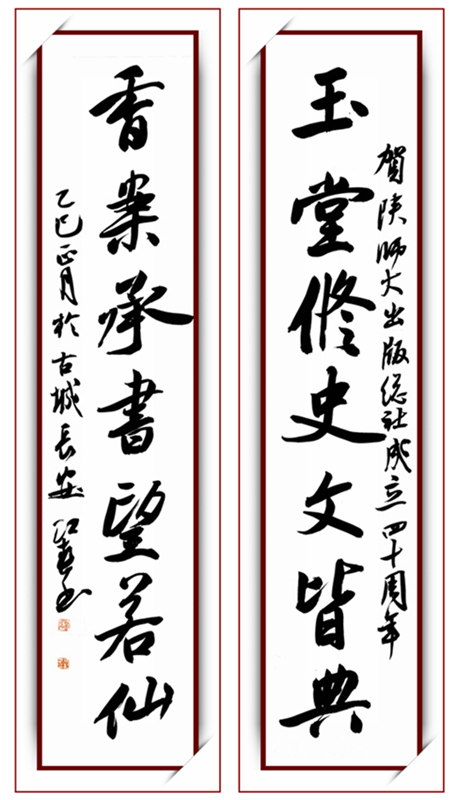 玉堂修史文皆典
賀陕师大出版总社成立四十周年
香案承書望若仙
乙巳正月於古城長安